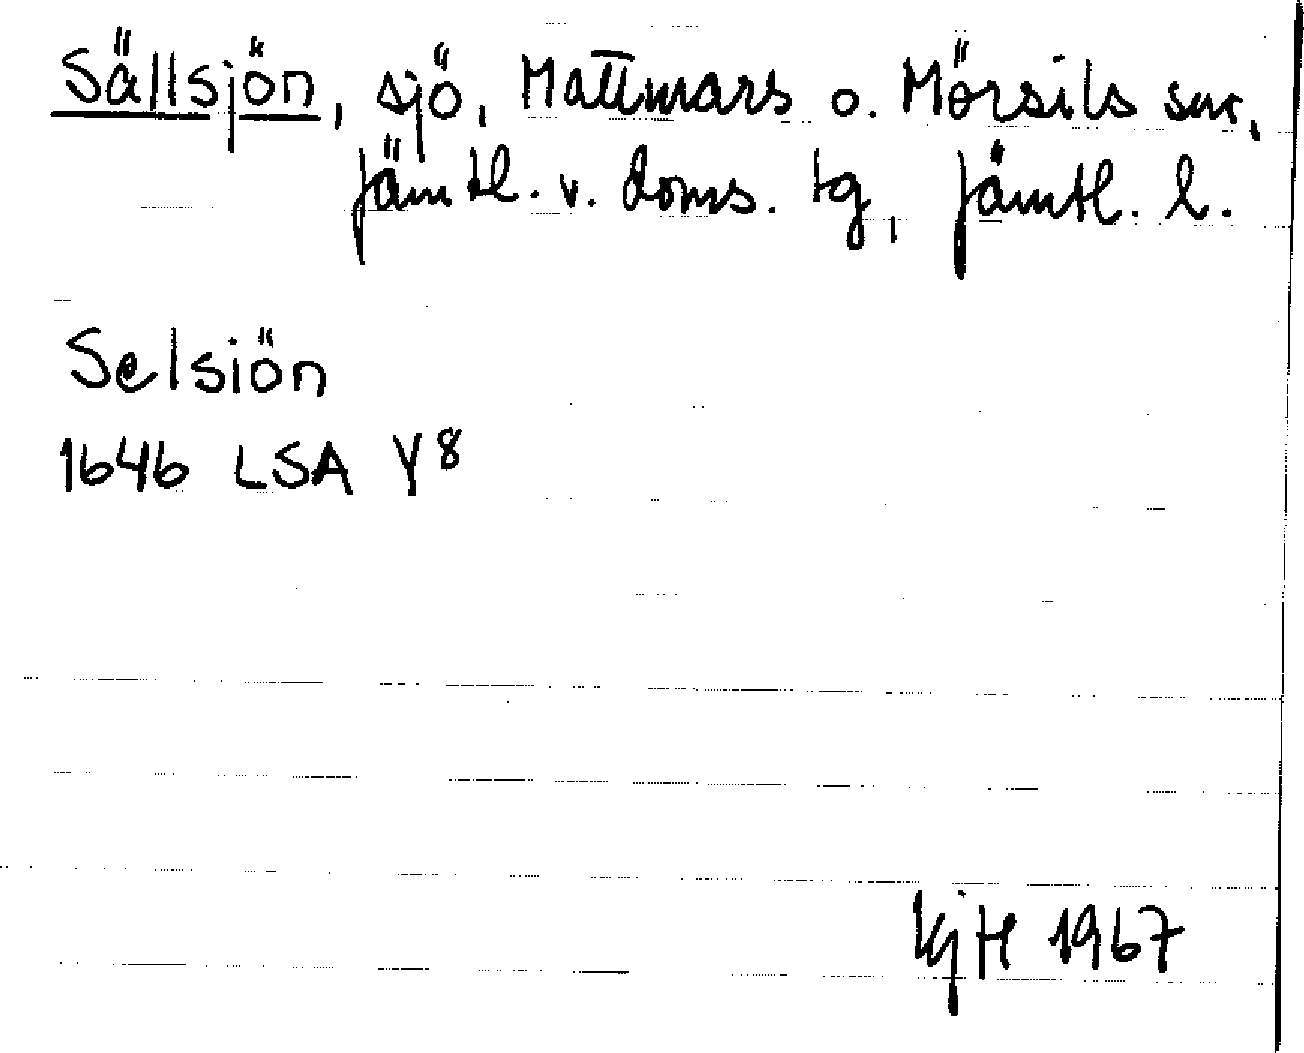 Sällsjön, sjö, Mattmars o. Mörsils snr,
Jämtl. v. doms. tg, Jämtl. l.
Selsiön
1646 LSA Y8
KjH 1967